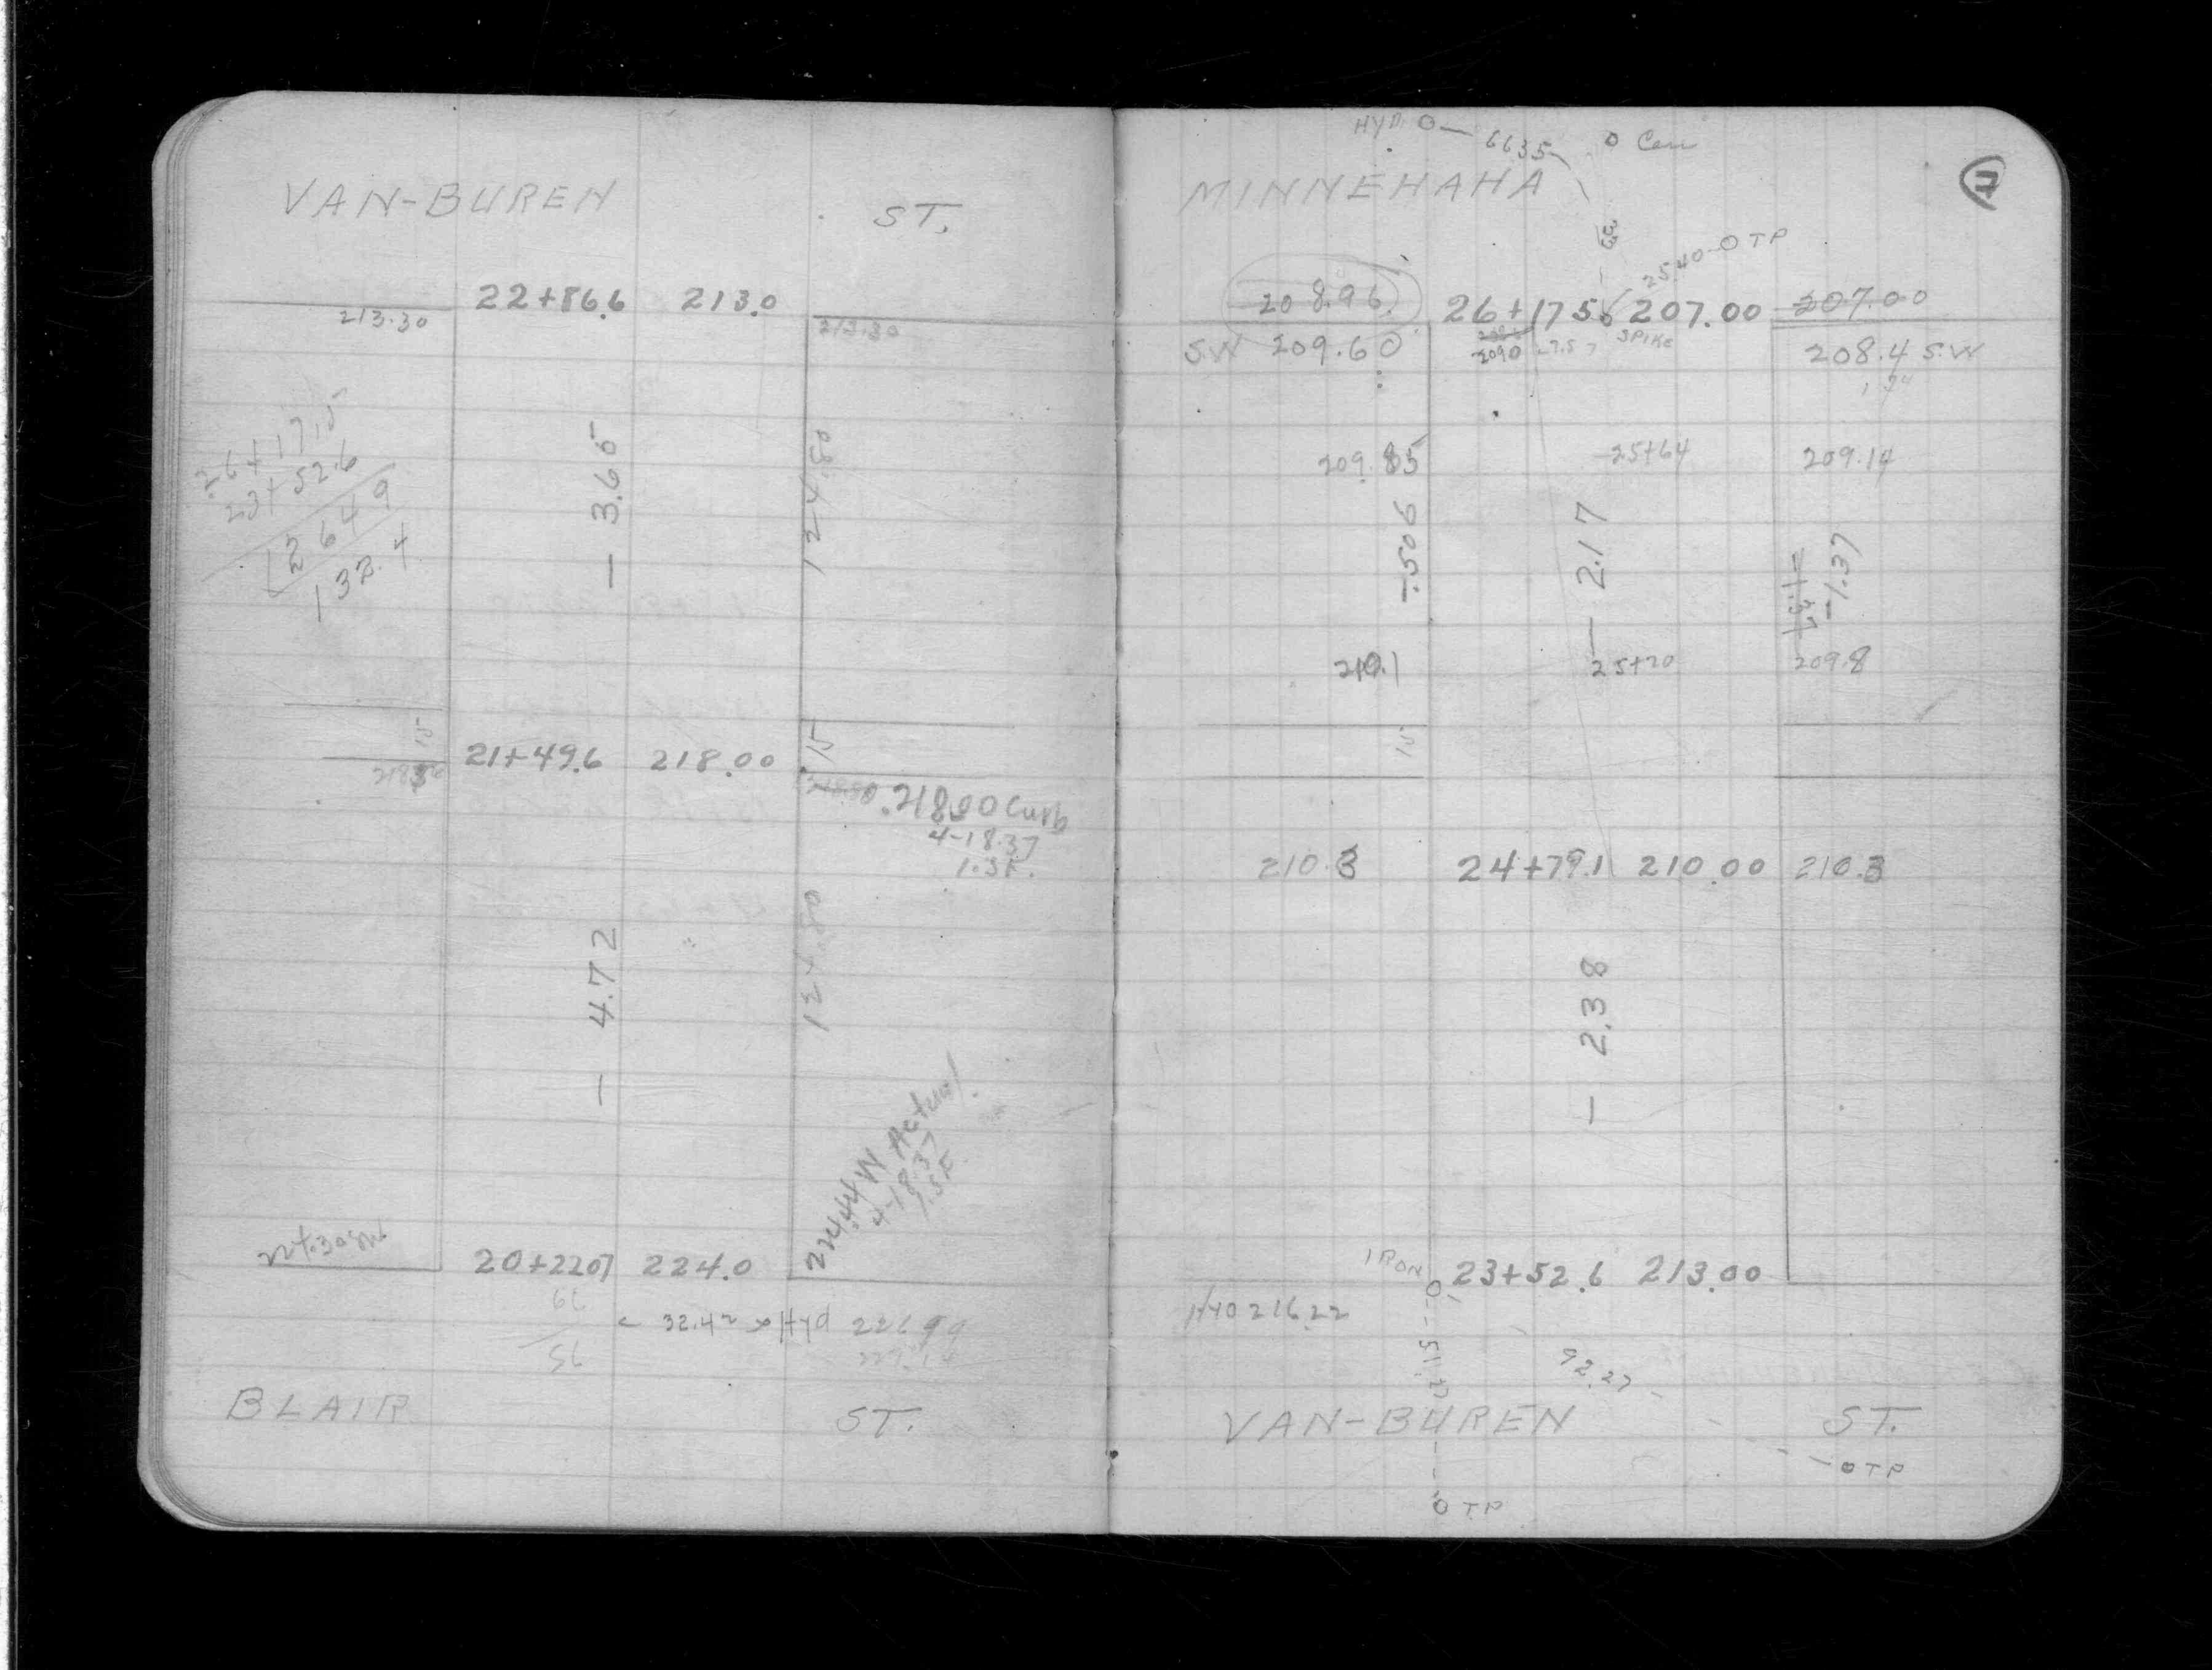 VAN-BUREN ST.
22+86.6 213.0
213.30
213.30
26+17.5
23+52.6
2649
132.4
- 3.65
124.80
15
21+49.6 218.00
15
218.00 Curb
4-18.37
1.3F.
- 4.72
124.80
224.44 W Actual
4-18.37
1.3F.
224.30
20+2207 224.0
32.42 Hyd 226.99
BLAIR ST.
HYD. O 6635 O Cen
MINNEHAHA
11
25.40 O TP
208.96 26+175 207.00 207.00
SW 209.60 2090 SPIKE 208.4 S.W
209.85 25+64 209.14
-.506 - 2.17 -1.37
210.1 25+20 209.8
15
210.3 24+79.1 210.00 210.3
- 2.38
IRON O 23+52.6 213.00
HYD 216.22
92.27
VAN-BUREN ST.
O TP
O TP